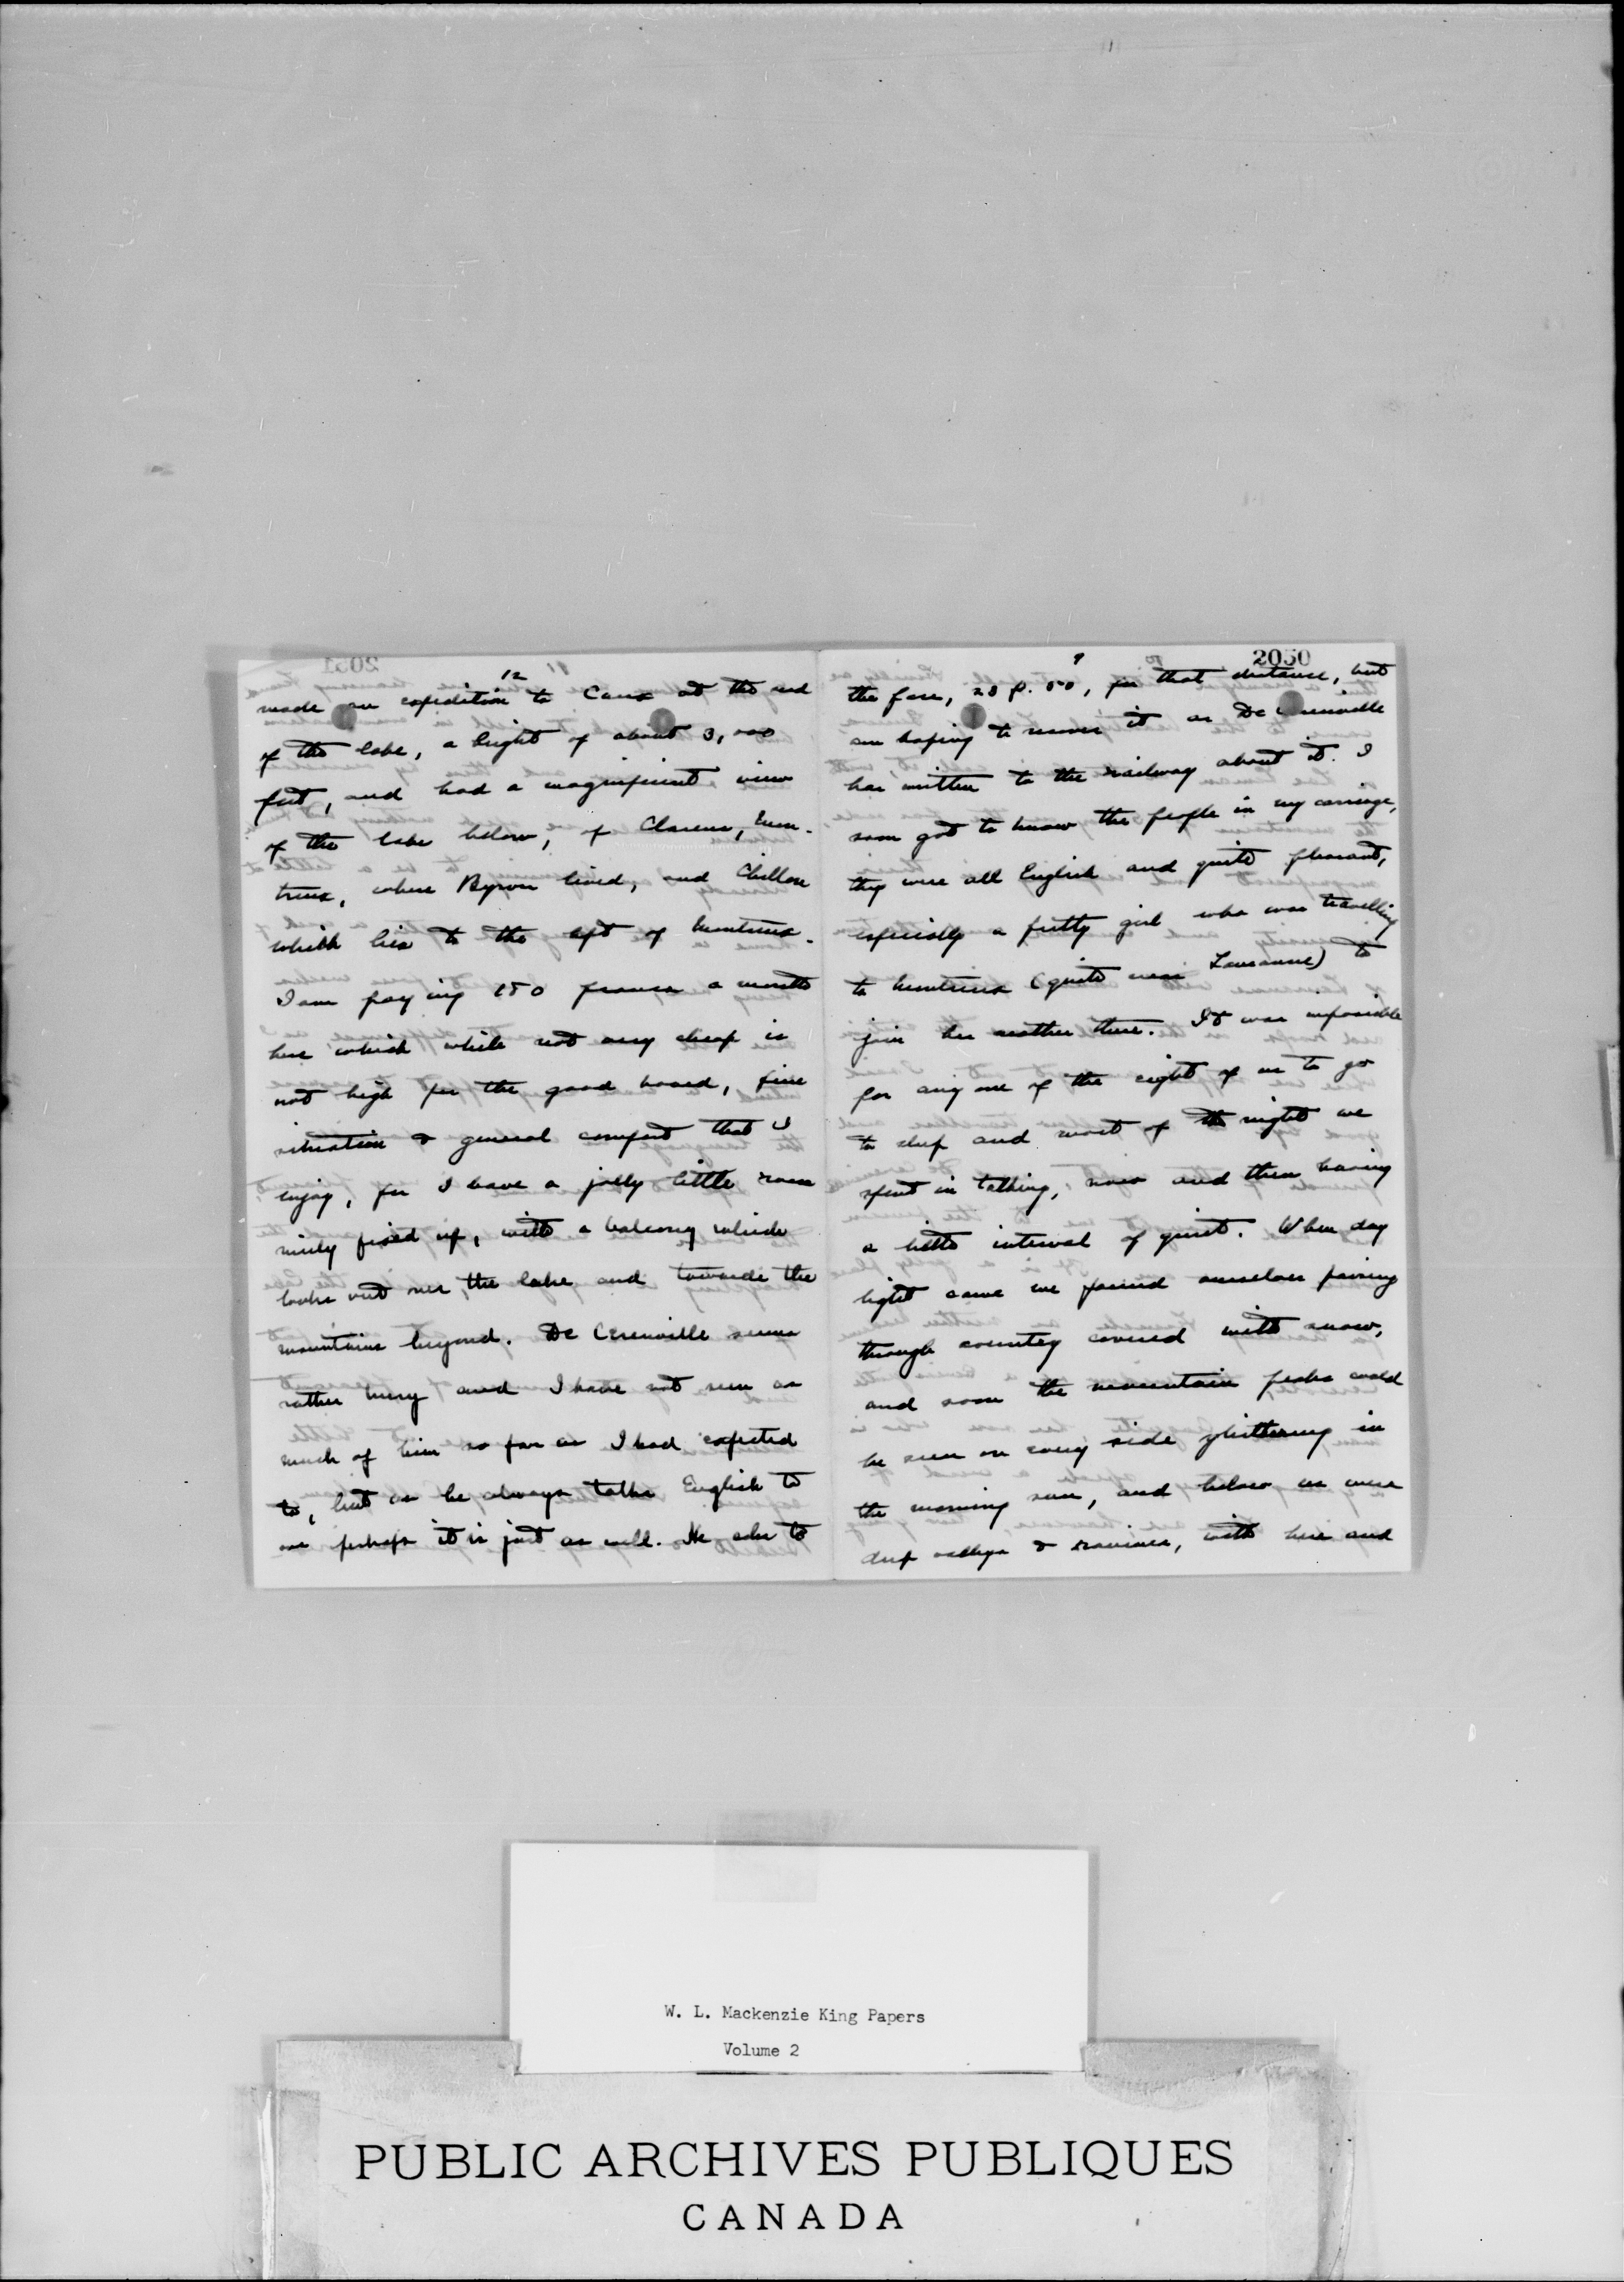 12
made an expedition to Caux at the end
of the lake, a height of about 3,000
feet, and had a magnificent view
of the lake below, of Clarens, Mon-
treux, where Byron lived, and Chillon
which lies to the left of Montreux.
I am paying 150 francs a month
here which while not very cheap is
not high for the good board, fine
situation & general comfort that I
enjoy, for I have a jolly little room
nicely fixed up, with a balcony which
looks out over the lake and towards the
mountains beyond. De Cerenville seems
rather busy and I have not seen as
much of him so far as I had expected
to, but as he always talks English to
me perhaps it is just as well. He asks to
2050
9
the fare, 28 f. 50, for that distance, but
am hoping to recover it as De Cerenville
has written to the railway about it. I
soon got to know the people in my carriage,
they were all English and quite pleasant,
especially a pretty girl who was travelling
to Montreux (quite near Lausanne) to
join her mother there. It was impossible
for any one of the eight of us to go
to sleep and most of the night we
spent in talking, now and then having
a little interval of quiet. When day
light came we found ourselves passing
through country covered with snow,
and soon the mountain peaks could
be seen on every side glittering in
the morning sun, and below us were
deep valleys & ravines, with here and
W. L. Mackenzie King Papers
Volume 2
PUBLIC ARCHIVES PUBLIQUES
CANADA